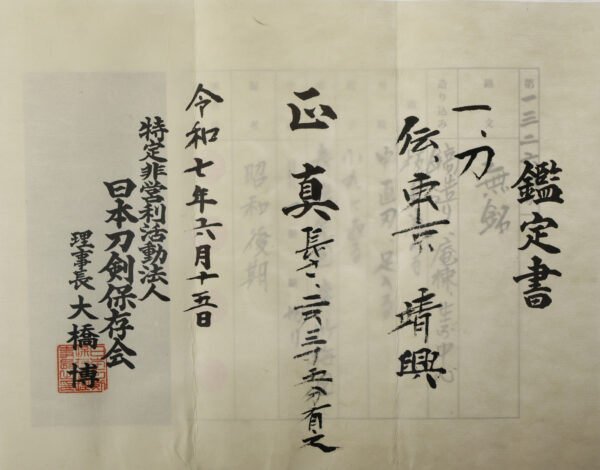 鑑定書
一、刀
伝、東京 靖興
正真 長さ、二尺三寸五分有之
令和七年六月十五日
特定非営利活動法人
日本刀剣保存会
理事長 大橋博
第一三二
銘文 無銘
造り込み
昭和後期